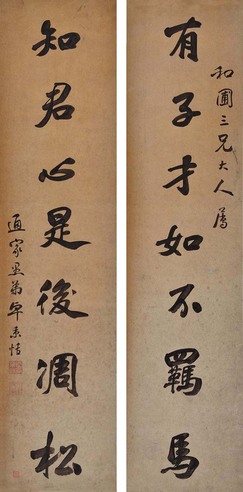 和圃三兄大人属
有子才如不羈馬
知君心是後凋松
通家愚弟卓秉恬